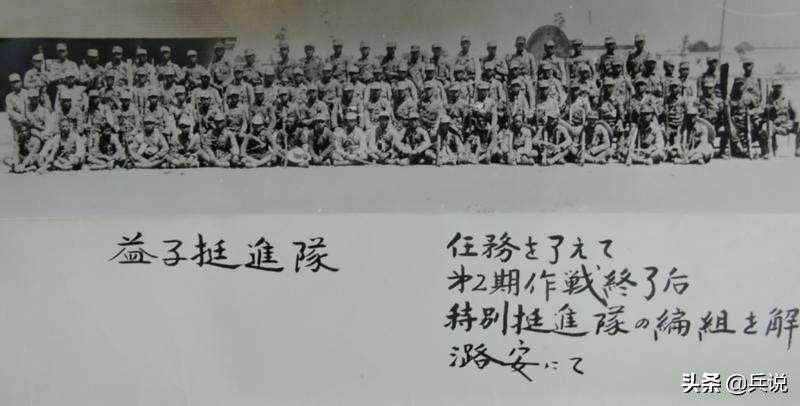 益子挺進隊
任務を了えて
才2期作戦終了后
特別挺進隊の編組を解
潞安にて
头条 @兵说